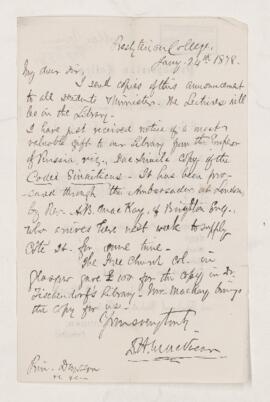 Presbyterian College,
Jany. 24th 1878.
My dear Sir,
I send copies of this announcement
to all students & Ministers. The Lectures will
be in the Library.
I have just received notice of a most
valuable gift to our Library from the Emperor
of Russia, viz., Fac Simile copy of the
Codex Sinaiticus - It has been pro-
cured through the Ambassador at London,
by Rev. A.B. MacKay, of Brighton Eng.,
who arrives here next week to supply
Côté St. for some time.
The Free Church Col. in
Glasgow gave £100 for the copy in Dr.
Tischendorf's Library. Mr. Mackay brings
the copy for us.
Yours very truly
D.H. MacVicar
Prin. Dawson